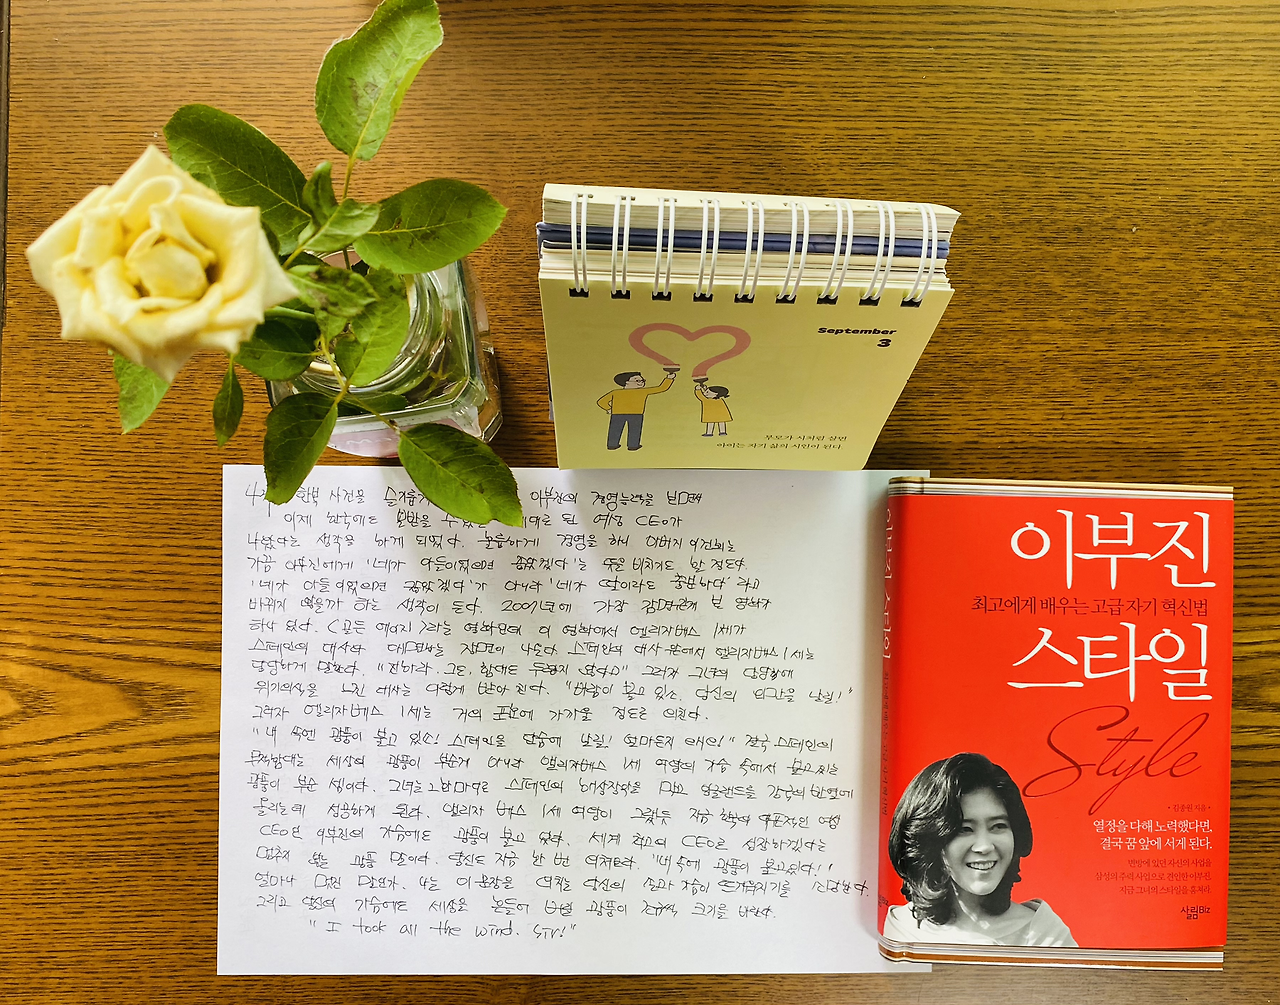 September
3
부모가 시처럼 살면
아이는 자기 삶의 시인이 된다.
사전을 이부진의 경영능력을 보면
이제 한국에도 만한 여성 CEO가
나왔다는 생각을 하게 되었다. 훌륭하게 경영을 하니 아버지 이건희는
가끔 이부진에게 '네가 아들이었으면 좋았겠다'는 뜻을 비치기도 할 정도다.
'네가 아들이었으면 좋았겠다'가 아니라 '네가 딸이라도 충분하다' 라고
바뀌지 않을까 하는 생각이 든다. 2007년에 가장 감명깊게 본 영화가
하나 있다. <골든 에이지>라는 영화인데 이 영화에서 엘리자베스 1세가
스페인의 대사와 대면하는 장면이 나온다. 스페인의 대사 앞에서 엘리자베스 1세는
당당하게 말한다. 그러자 그녀의 당당함에
위기의식을 느낀 대사는 이렇게 받아 친다. "바람이 불고 있소, 당신의 왕관을 날릴!"
그러자 엘리자베스 1세는 거의 포효에 가까울 정도로 외친다.
"내 속엔 광풍이 불고 있소! 스페인을 단숨에 날릴! 얼마든지 오시오!" 결국 스페인의
무적함대는 세상의 광풍이 부는게 아니라 엘리자베스 1세 여왕의 가슴 속에서 불고 있는
광풍이 부순 셈이다. 그녀는 그 한마디로 스페인의 해상장악을 막고 잉글랜드를 강국의 반열에
올리는데 성공하게 된다. 엘리자베스 1세 여왕이 그랬듯 지금 한국의 대표적인 여성
CEO인 이부진의 가슴에도 광풍이 불고 있다. 세계 최고의 CEO로 성장하겠다는
멈추지 않는 광풍 말이다. 당신도 지금 한 번 외쳐보라. "내 속에 광풍이 불고있다!"
얼마나 멋진 말인가. 나는 이 문장을 외치는 당신의 심장이 뜨거워지기를
그리고 당신의 가슴에도 세상을 흔들어 버릴 광풍이 크기를 바란다.
"I took all the wind. sir!"
이부진
최고에게 배우는 고급 자기 혁신법
스타일
Style
• 김종원 지음 •
열정을 다해 노력했다면,
결국 꿈 앞에 서게 된다.
변방에 있던 자신의 사업을
삼성의 주력 사업으로 견인한 이부진.
지금 그녀의 스타일을 훔쳐라.
살림Biz